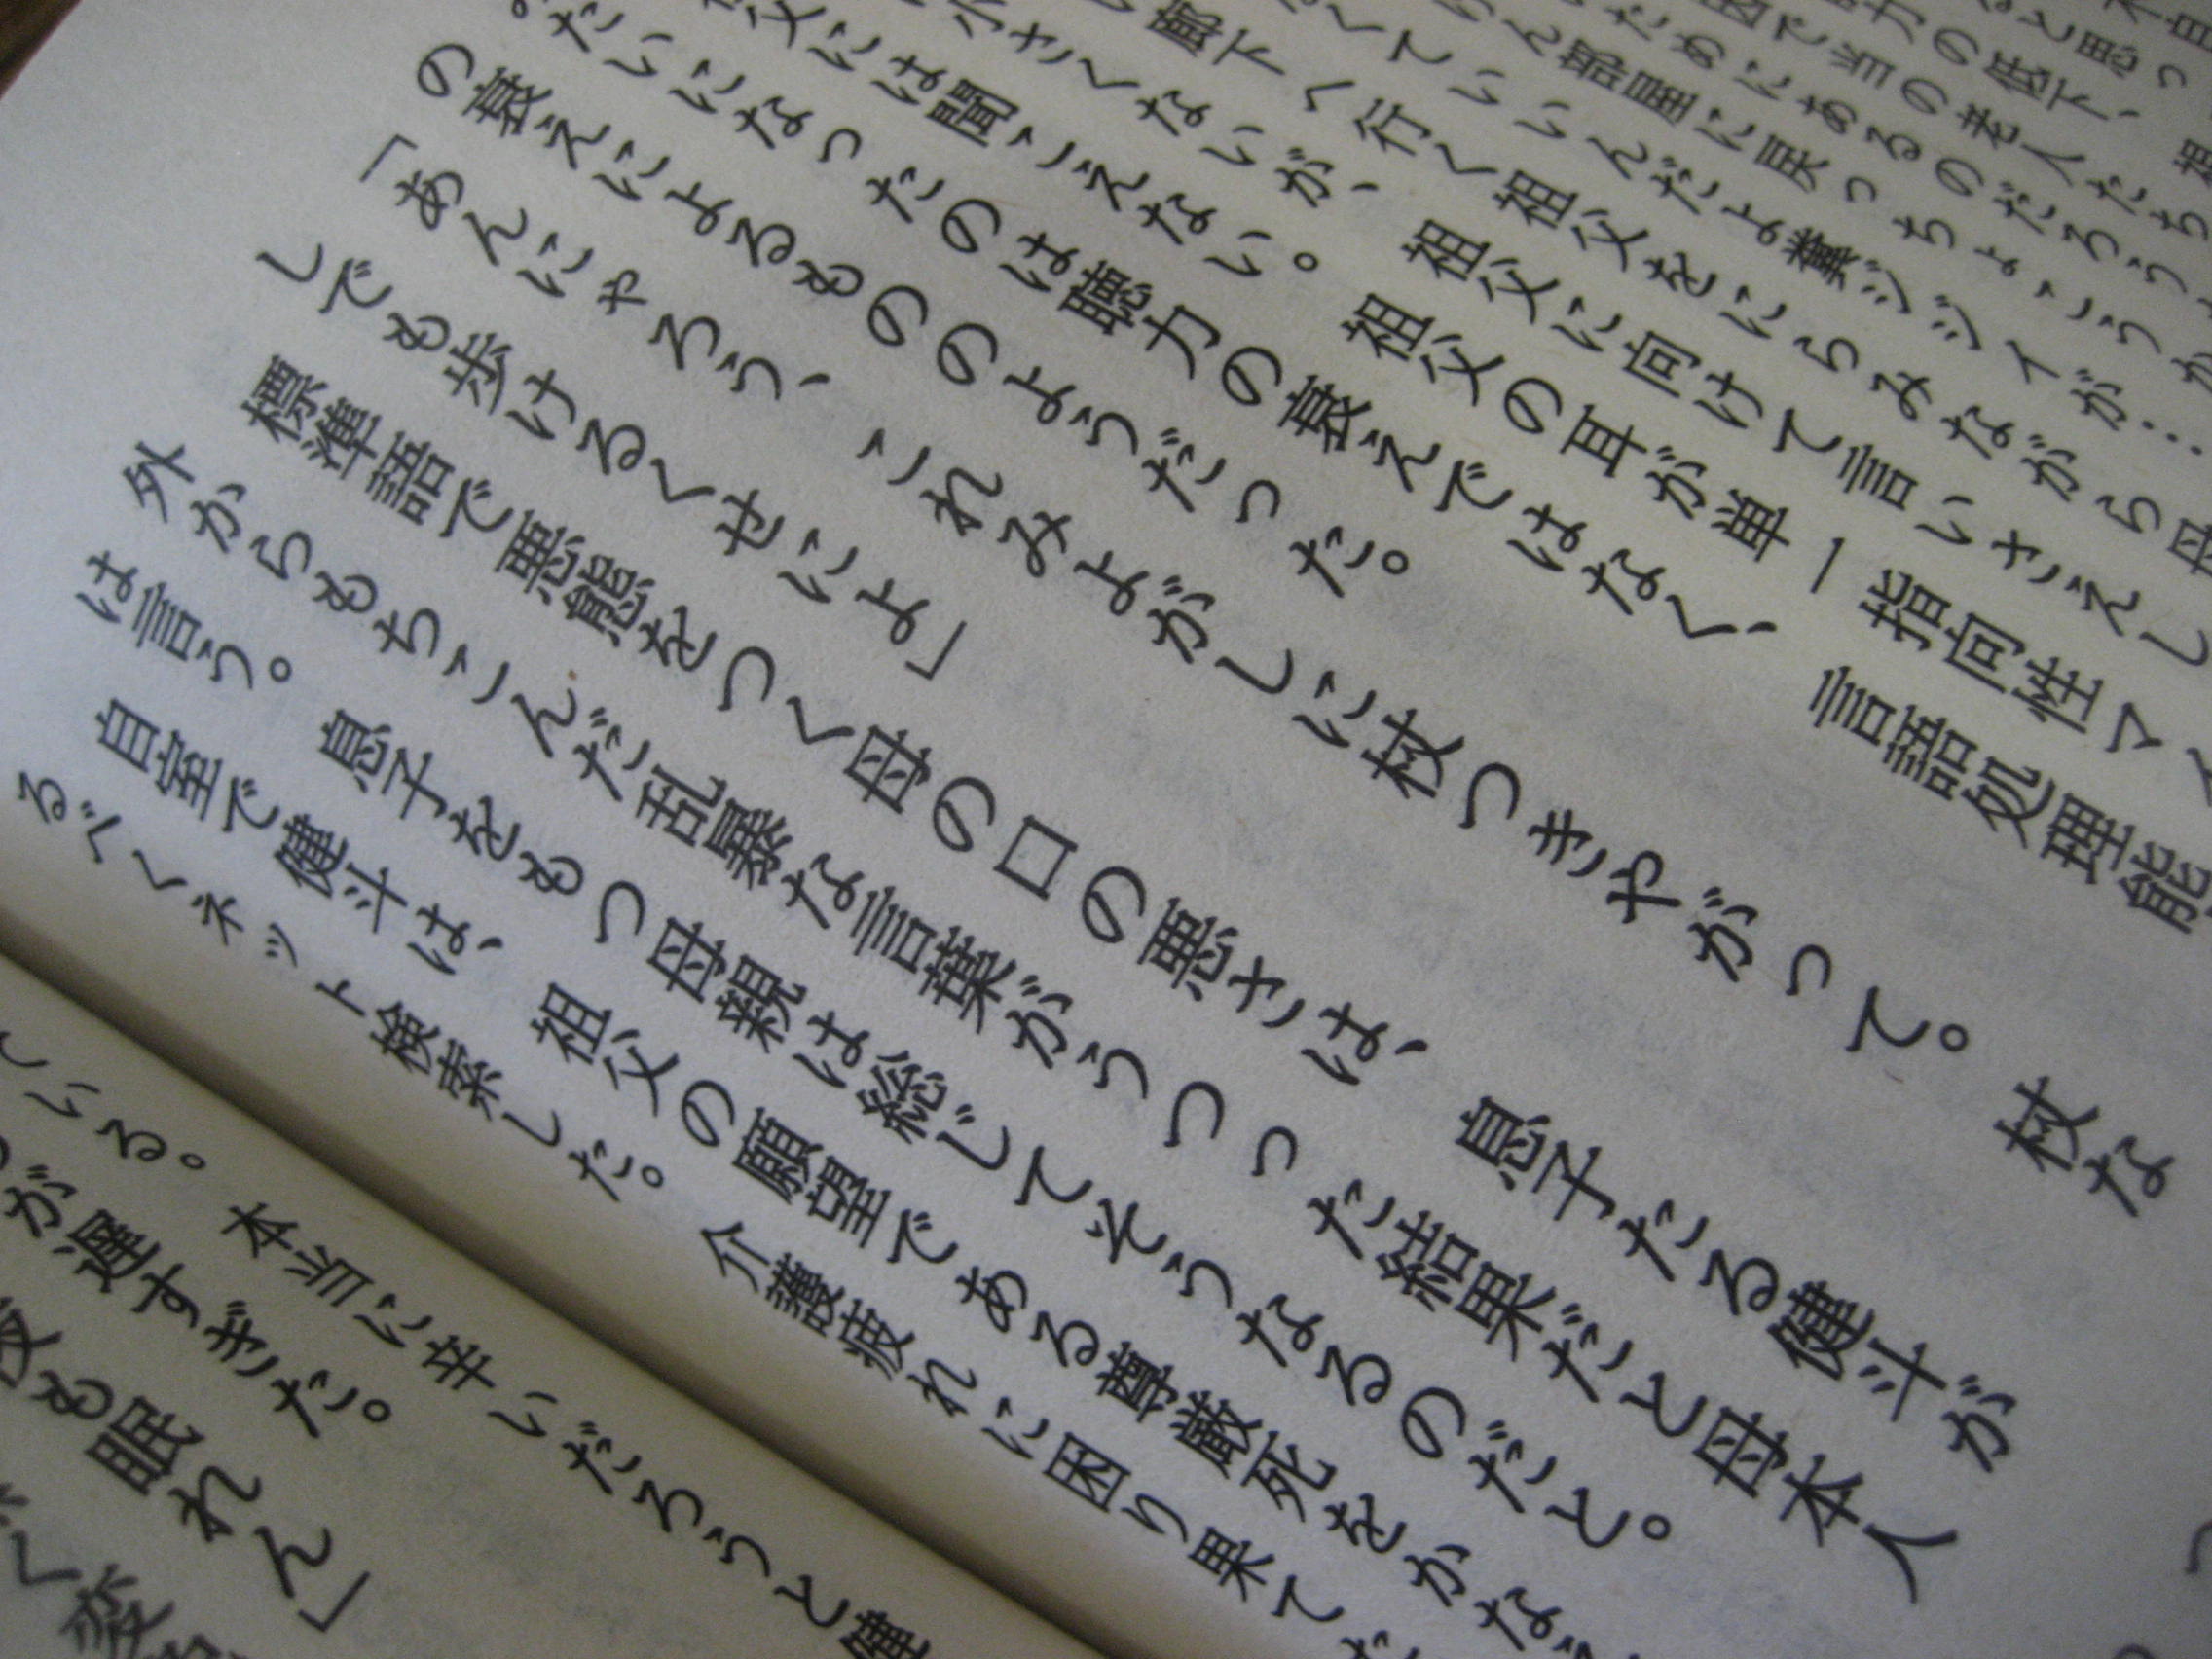 と思っ
力の低下、
因で当の老人たち
ためにあるのだろう
けん部屋に戻っちょこうか
くていいんだよ糞ジジイが…
廊下へ行く祖父をにらみながら母
小さくないが、祖父に向けて言いさえし
父には聞こえない。祖父の耳が単一指向性マイ
だいになったのは聴力の衰えではなく、言語処理能
の衰えによるもののようだった。
「あんにゃろう、これみよがしに杖つきやがって。杖な
しでも歩けるくせによ」
標準語で悪態をつく母の口の悪さは、息子たる健斗が
外からもちこんだ乱暴な言葉がうつった結果だと母本人
は言う。息子をもつ母親は総じてそうなるのだと。
自室で健斗は、祖父の願望である尊厳死をかな
るべくネット検索した。介護疲れに困り果てた
ている。本当に辛いだろうと健
が遅すぎだ。
夜も眠れん」
く変